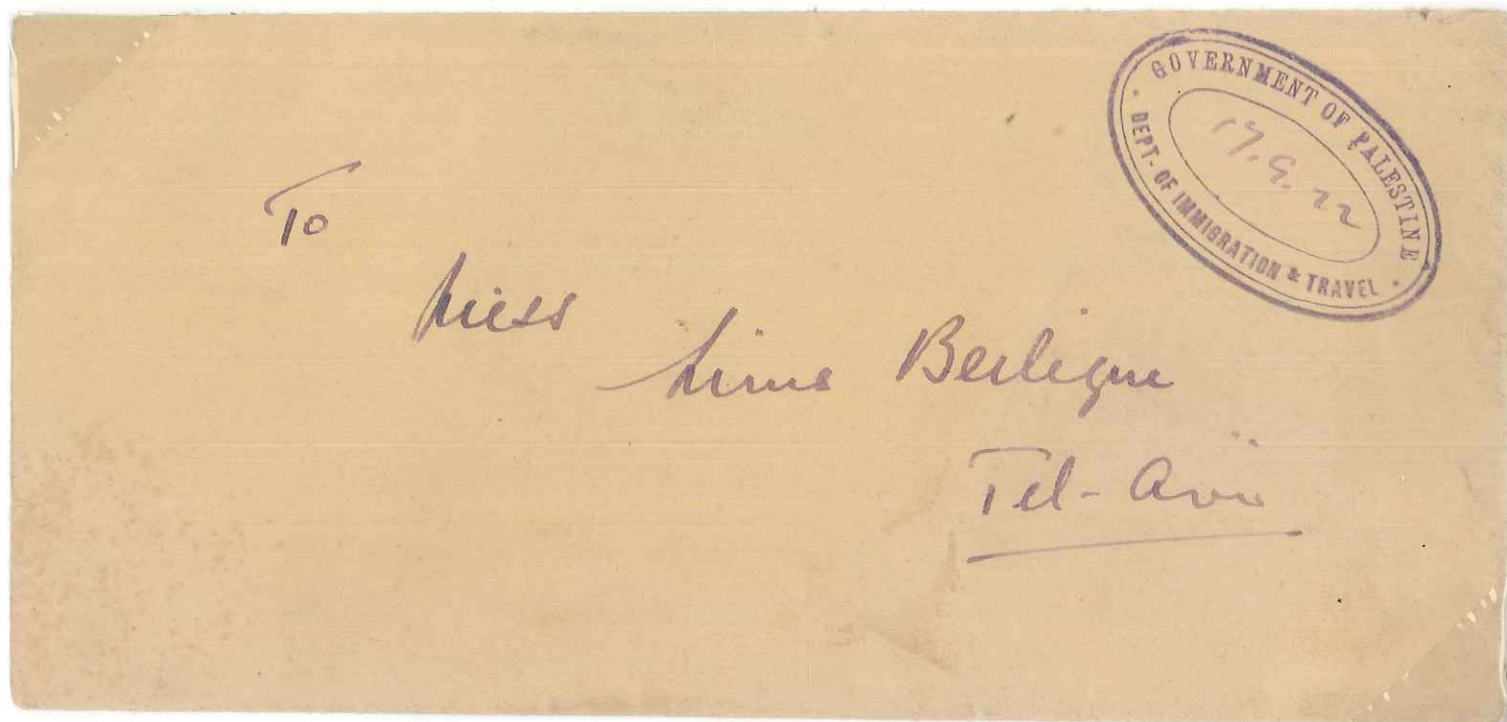 GOVERNMENT OF PALESTINE
17.9.22
DEPT. OF IMMIGRATION & TRAVEL
To
Miss
Berligne
Tel-Aviv